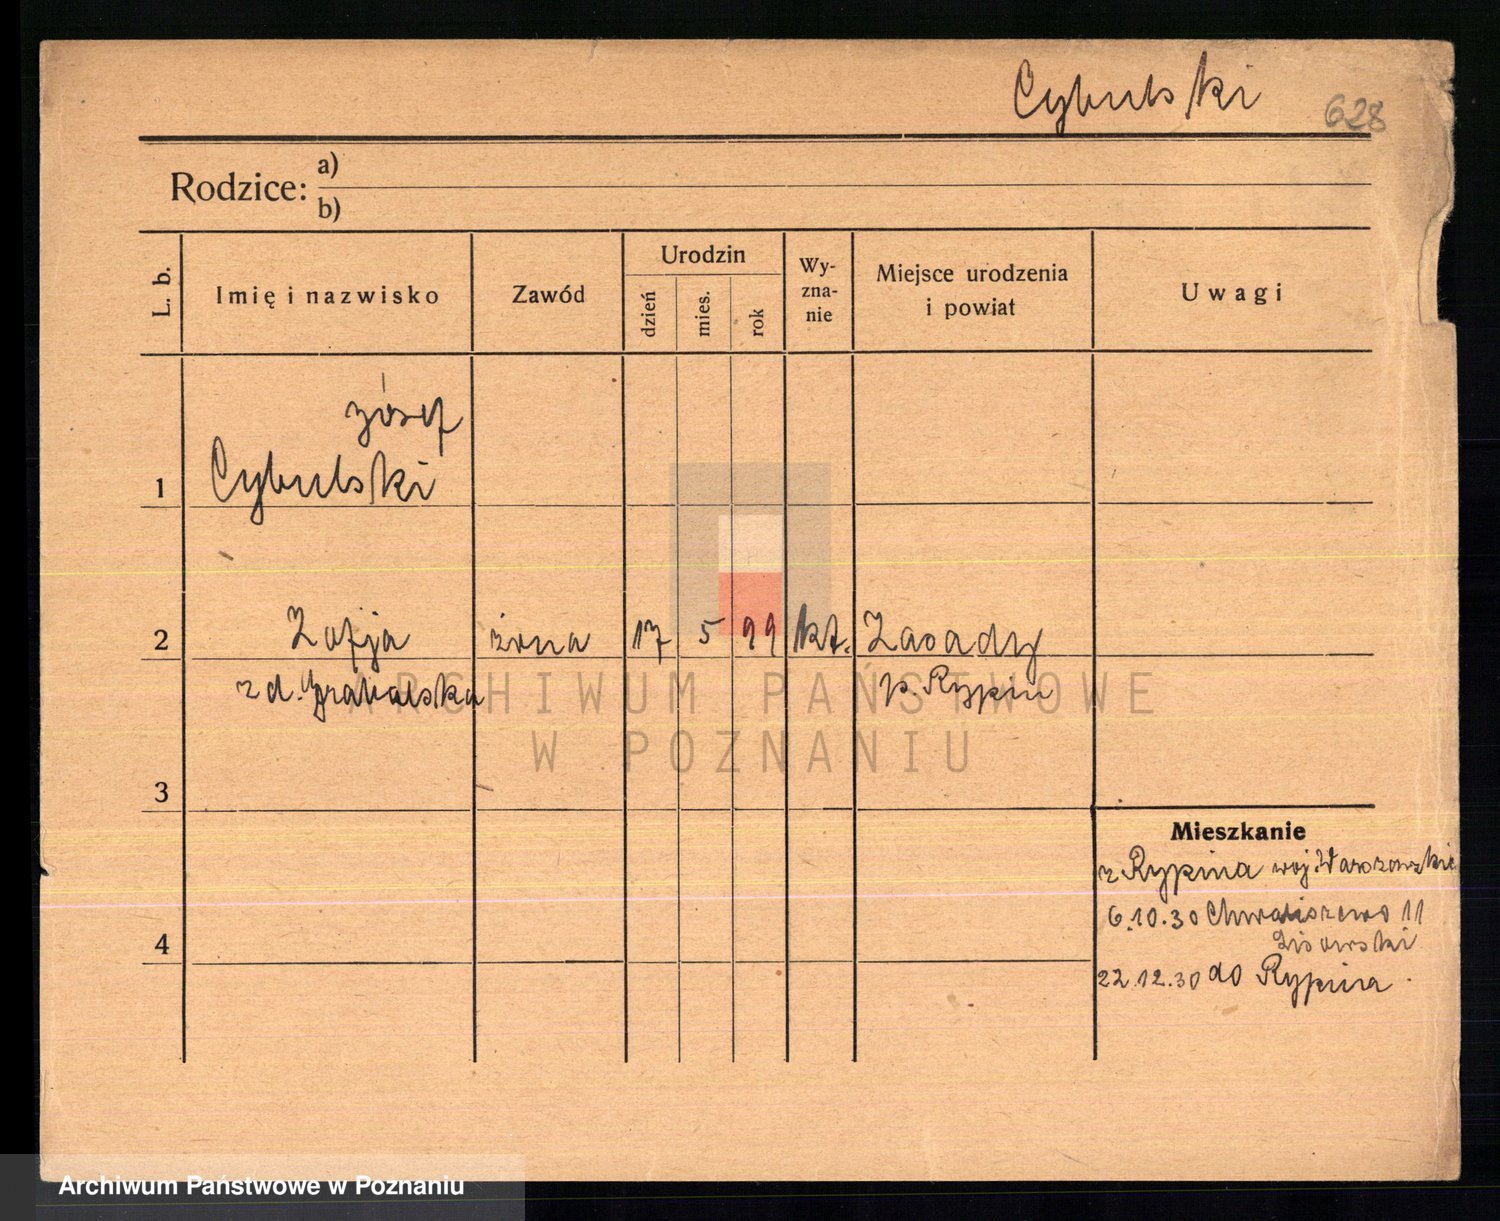 Cybulski
628
Rodzice: a)
b)
L. b.
Imię i nazwisko
Zawód
Urodzin
dzień
mies.
rok
Wy-
zna-
nie
Miejsce urodzenia
i powiat
Uwagi
józef
1 Cybulski
2 Zofja żona 17 5 99 kt. Zasady
z d. Grabalska p. Rypin
ARCHIWUM PAŃSTWOWE
W POZNANIU
3
Mieszkanie
z Rypina woj. Warszawskie
6.10.30 Chwaliszewo 11
Lisowski
4
22.12.30 do Rypina.
Archiwum Państwowe w Poznaniu